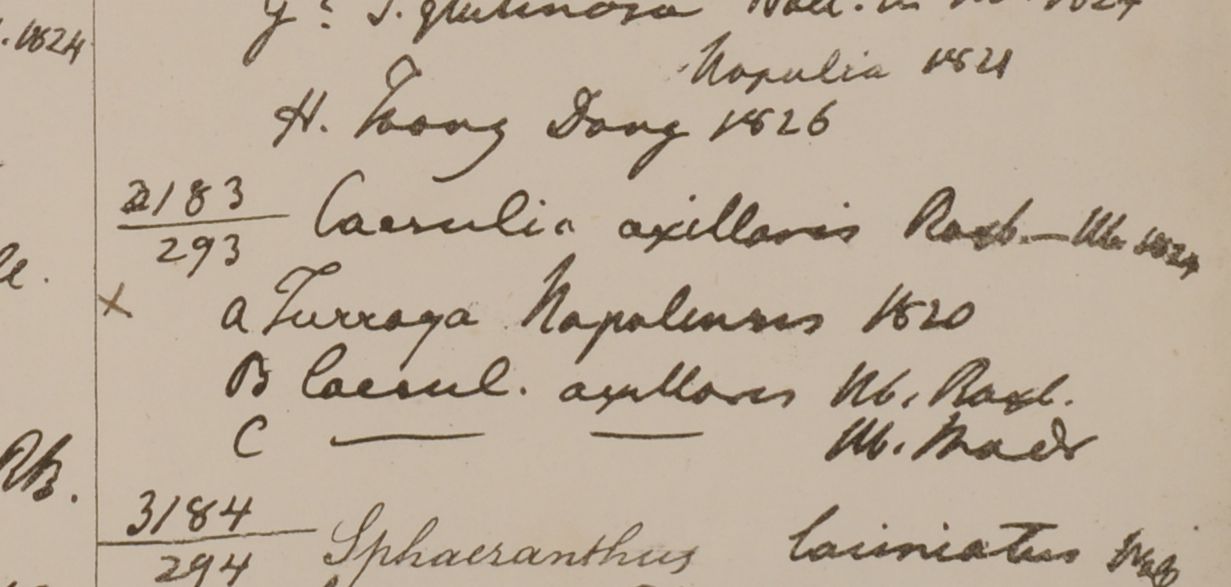 .1824
G? S. glutinosa Wall. in 1824
Napalia 1821
H. Toong Dong 1826
3183
293 Caesulia axillaris Roxb. — Hb. 1824
x
le.
a Turraga Napalensis 1820
B Caesul. axillaris Hb. Roxb.
C —— —— Hb. Madr
Rb.
3184
294 Sphaeranthus laciniatus